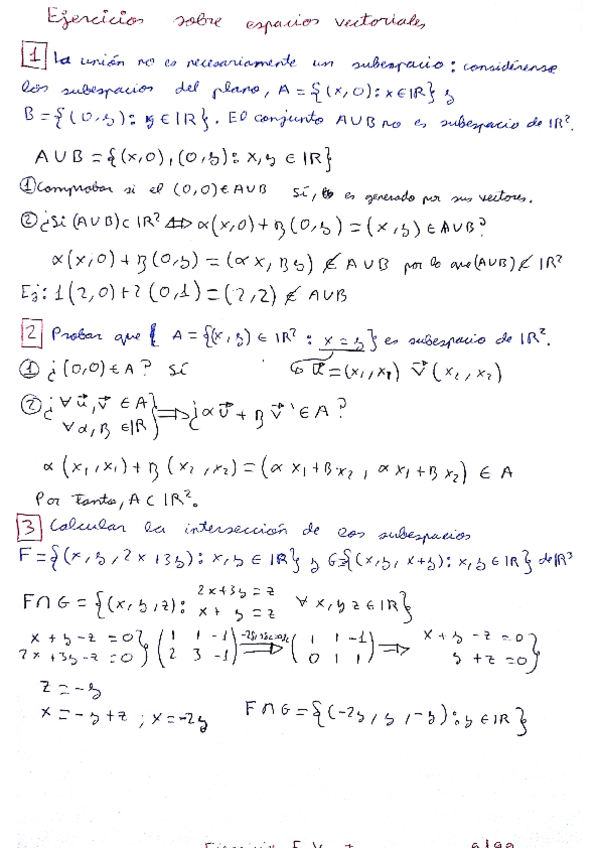 Ejercicios sobre espacios vectoriales
1 La unión no es necesariamente un subespacio: considérense
los subespacios del plano, A = {(x,0): x ∈ IR} y
B = {(0,y): y ∈ IR}. El conjunto A∪B no es subespacio de IR².
A∪B = {(x,0), (0,y): x,y ∈ IR}
① Comprobar si el (0,0) ∈ A∪B Sí, es generado por sus vectores.
② ¿Si (A∪B) ⊂ IR² ⟺ α(x,0) + β(0,y) = (x,y) ∈ A∪B?
α(x,0) + β(0,y) = (αx, βy) ∉ A∪B por lo que (A∪B) ⊄ IR²
Ej: 1(2,0) + 2(0,1) = (2,2) ∉ A∪B
2 Probar que { A = {(x,y) ∈ IR² : x = y} es subespacio de IR².
① ¿(0,0) ∈ A? Sí u⃗ = (x₁,x₁) v⃗ (x₂,x₂)
② ¿∀ u⃗, v⃗ ∈ A} ⟹ ¿α u⃗ + β v⃗ ∈ A?
∀ α, β ∈ IR}
α (x₁,x₁) + β (x₂,x₂) = (α x₁ + β x₂, α x₁ + β x₂) ∈ A
Por tanto, A ⊂ IR².
3 Calcular la intersección de los subespacios
F = {(x,y,2x+3y): x,y ∈ IR} y G = {(x,y,x+y): x,y ∈ IR} de IR³
F∩G = {(x,y,z): 2x+3y = z x+y = z ∀ x,y z ∈ IR}
x + y - z = 0} (1 1 -1) ⟹ (1 1 -1) ⟹ x + y - z = 0}
2x + 3y - z = 0} (2 3 -1) (0 1 1) y + z = 0}
z = -y
x = -y + z ; x = -2y F∩G = {(-2y, y, -y): y ∈ IR}